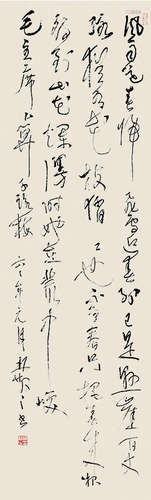 風雨送春归飛雪迎春到已是懸崖百丈
冰猶有花枝俏々也不争春只把春来报
待到山花爛漫時她在叢中笑
毛主席卜算子詠梅 年元月林散之书